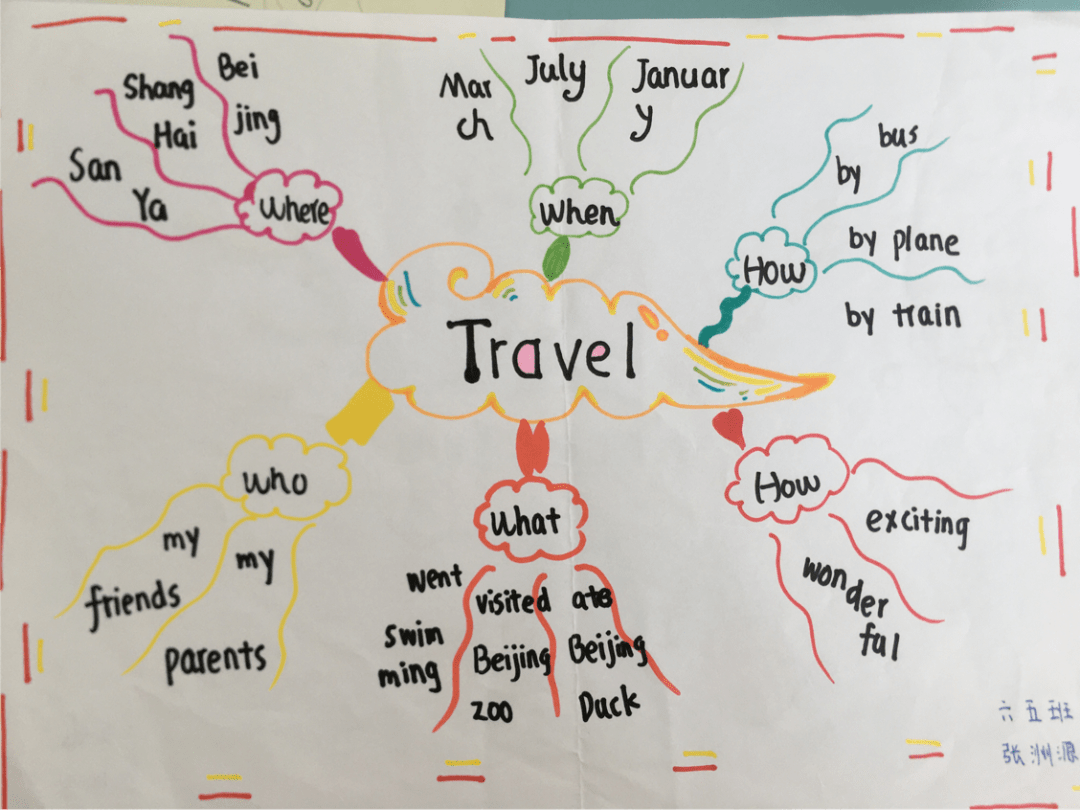 Bei
jing
Shang
Hai
San
Ya
Where
Mar
ch
July
Januar
y
When
by bus
by plane
by train
How
Travel
who
my
friends
my
parents
What
went
swim
ming
visited
Beijing
zoo
ate
Beijing
Duck
How
exciting
wonder
ful
六五班
张洲源